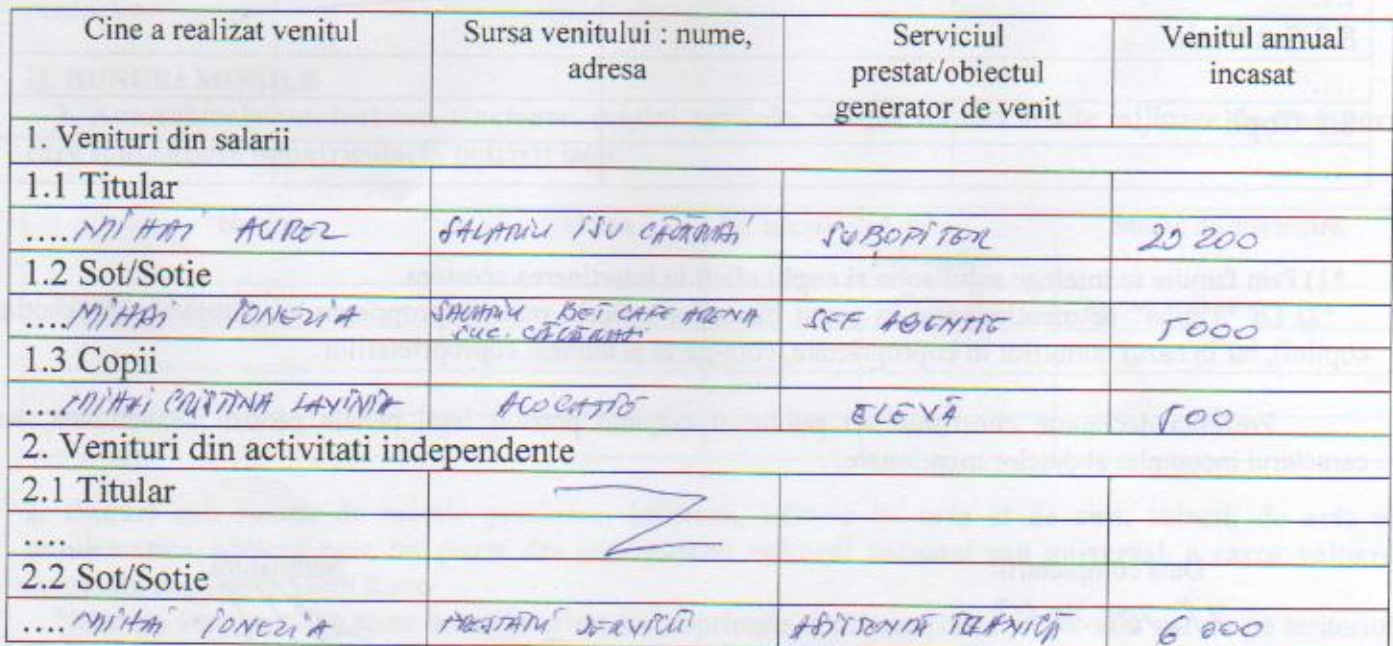 Cine a realizat venitul
Sursa venitului : nume, adresa
Serviciul prestat/obiectul generator de venit
Venitul annual incasat
1. Venituri din salarii
1.1 Titular
....MIHAI AUREL SALARIU ISU CĂLĂRAȘI SUBOFIȚER 29 200
1.2 Sot/Sotie
....MIHAI IONELIA SALARIU BET CAFE ARENA SUC. CĂLĂRAȘI SEF AGENTIE 5000
1.3 Copii
....MIHAI CRISTINA LAVINIA ALOCAȚIE ELEVĂ 500
2. Venituri din activitati independente
2.1 Titular
....
2.2 Sot/Sotie
....MIHAI IONELIA PRESTARI SERVICII ASISTENTĂ TEHNICĂ 6 000